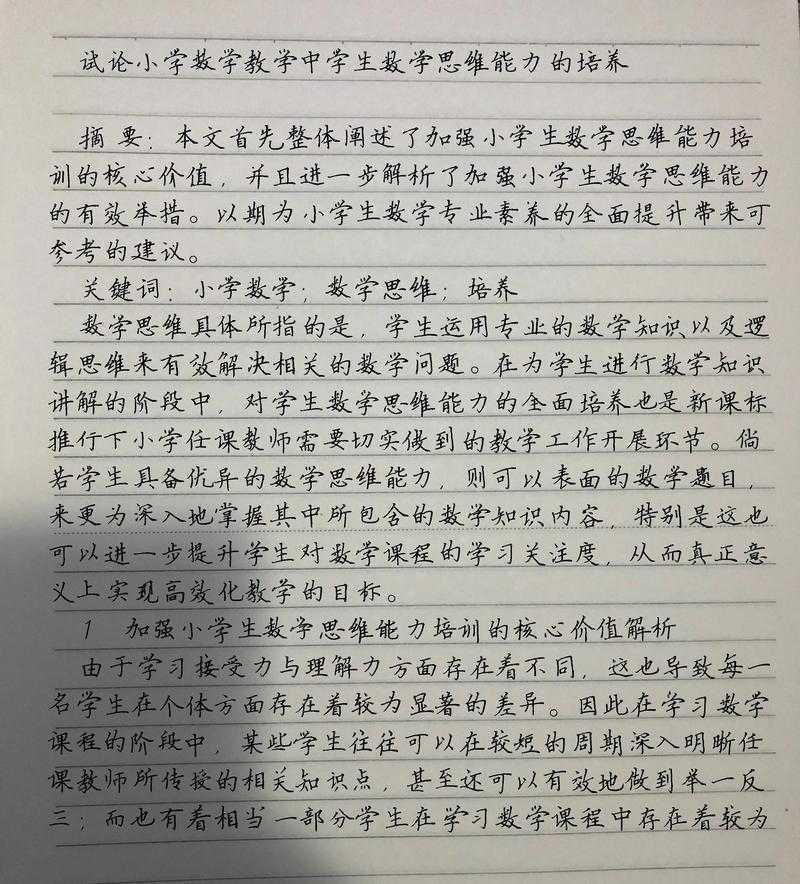 试论小学数学教学中学生数学思维能力的培养
摘 要：本文首先整体阐述了加强小学生数学思维能力培
训的核心价值，并且进一步解析了加强小学生数学思维能力
的有效举措。以期为小学生数学专业素养的全面提升带来可
参考的建议。
关键词：小学数学；数学思维；培养
数学思维具体所指的是，学生运用专业的数学知识以及逻
辑思维来有效解决相关的数学问题。在为学生进行数学知识
讲解的阶段中，对学生数学思维能力的全面培养也是新课标
推行下小学任课教师需要切实做到的教学工作开展环节。倘
若学生具备优异的数学思维能力，则可以表面的数学题目，
来更为深入地掌握其中所包含的数学知识内容，特别是这也
可以进一步提升学生对数学课程的学习关注度，从而真正意
义上实现高效化教学的目标。
1 加强小学生数学思维能力培训的核心价值解析
由于学习接受力与理解力方面存在着不同，这也导致每一
名学生在个体方面存在着较为显著的差异。因此在学习数学
课程的阶段中，某些学生往往可以在较短的周期深入明晰任
课教师所传授的相关知识点，甚至还可以有效地做到举一反
三；而也有着相当一部分学生在学习数学课程中存在着较为